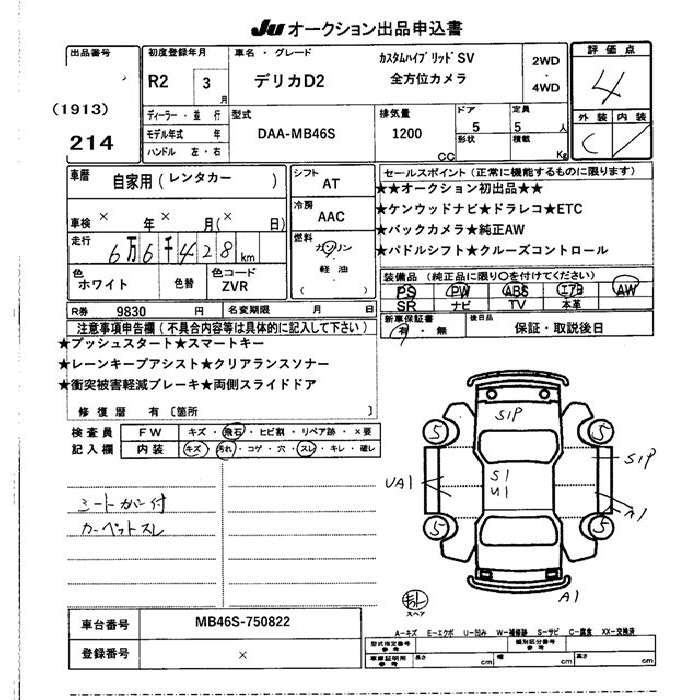 Ju オークション出品申込書
出品番号 初度登録年月 車名・グレード カスタムハイブリッドSV 2WD 評価点
R2 3月 デリカD2 全方位カメラ ・4WD 4
(1913) ディーラー・並行 型式 排気量 ドア 定員 外装 内装
214 モデル年式 年 DAA-MB46S 1200CC 5 5人 C
ハンドル 左・右 形状 積載 Kg
車暦 自家用(レンタカー) シフト AT セールスポイント(正常に機能するものに限ります)
★★オークション初出品★★
車検 × 年 × 月(× 日) 冷房 AAC ★ケンウッドナビ★ドラレコ★ETC
走行 6万6千428km 燃料 ガソリン ★バックカメラ★純正AW
軽油 ★パドルシフト★クルーズコントロール
( )
色 ホワイト 色替 色コード ZVR 装備品(純正品に限り○を付けてください)
PS PW ABS エアB AW
SR ナビ TV 本革
R券 9830円 名変期限 月 日 新車保証書 後日品
有・無 保証・取説後日
注意事項申告欄(不具合内容等は具体的に記入して下さい)
★プッシュスタート★スマートキー
★レーンキープアシスト★クリアランスソナー
★衝突被害軽減ブレーキ★両側スライドドア
修復歴 有〔箇所 〕
検査員 FW キズ・飛石・ヒビ割・リペア跡・×要
記入欄 内装 キズ・汚れ・コゲ・穴・スレ・キレ・破レ
S1P
5 5
S1P
UA1 S1
U1
A1
シートカバー付
カーペットスレ
5 5
スペア A1
車台番号 MB46S-750822
登録番号 ×
A-キズ E-エクボ U-凹み W-補修跡 S-サビ C-腐食 XX-交換済
型式指定番号 参考 類別区分番号 参考
車庫証明用 参考 長さ cm 幅 cm 高さ cm